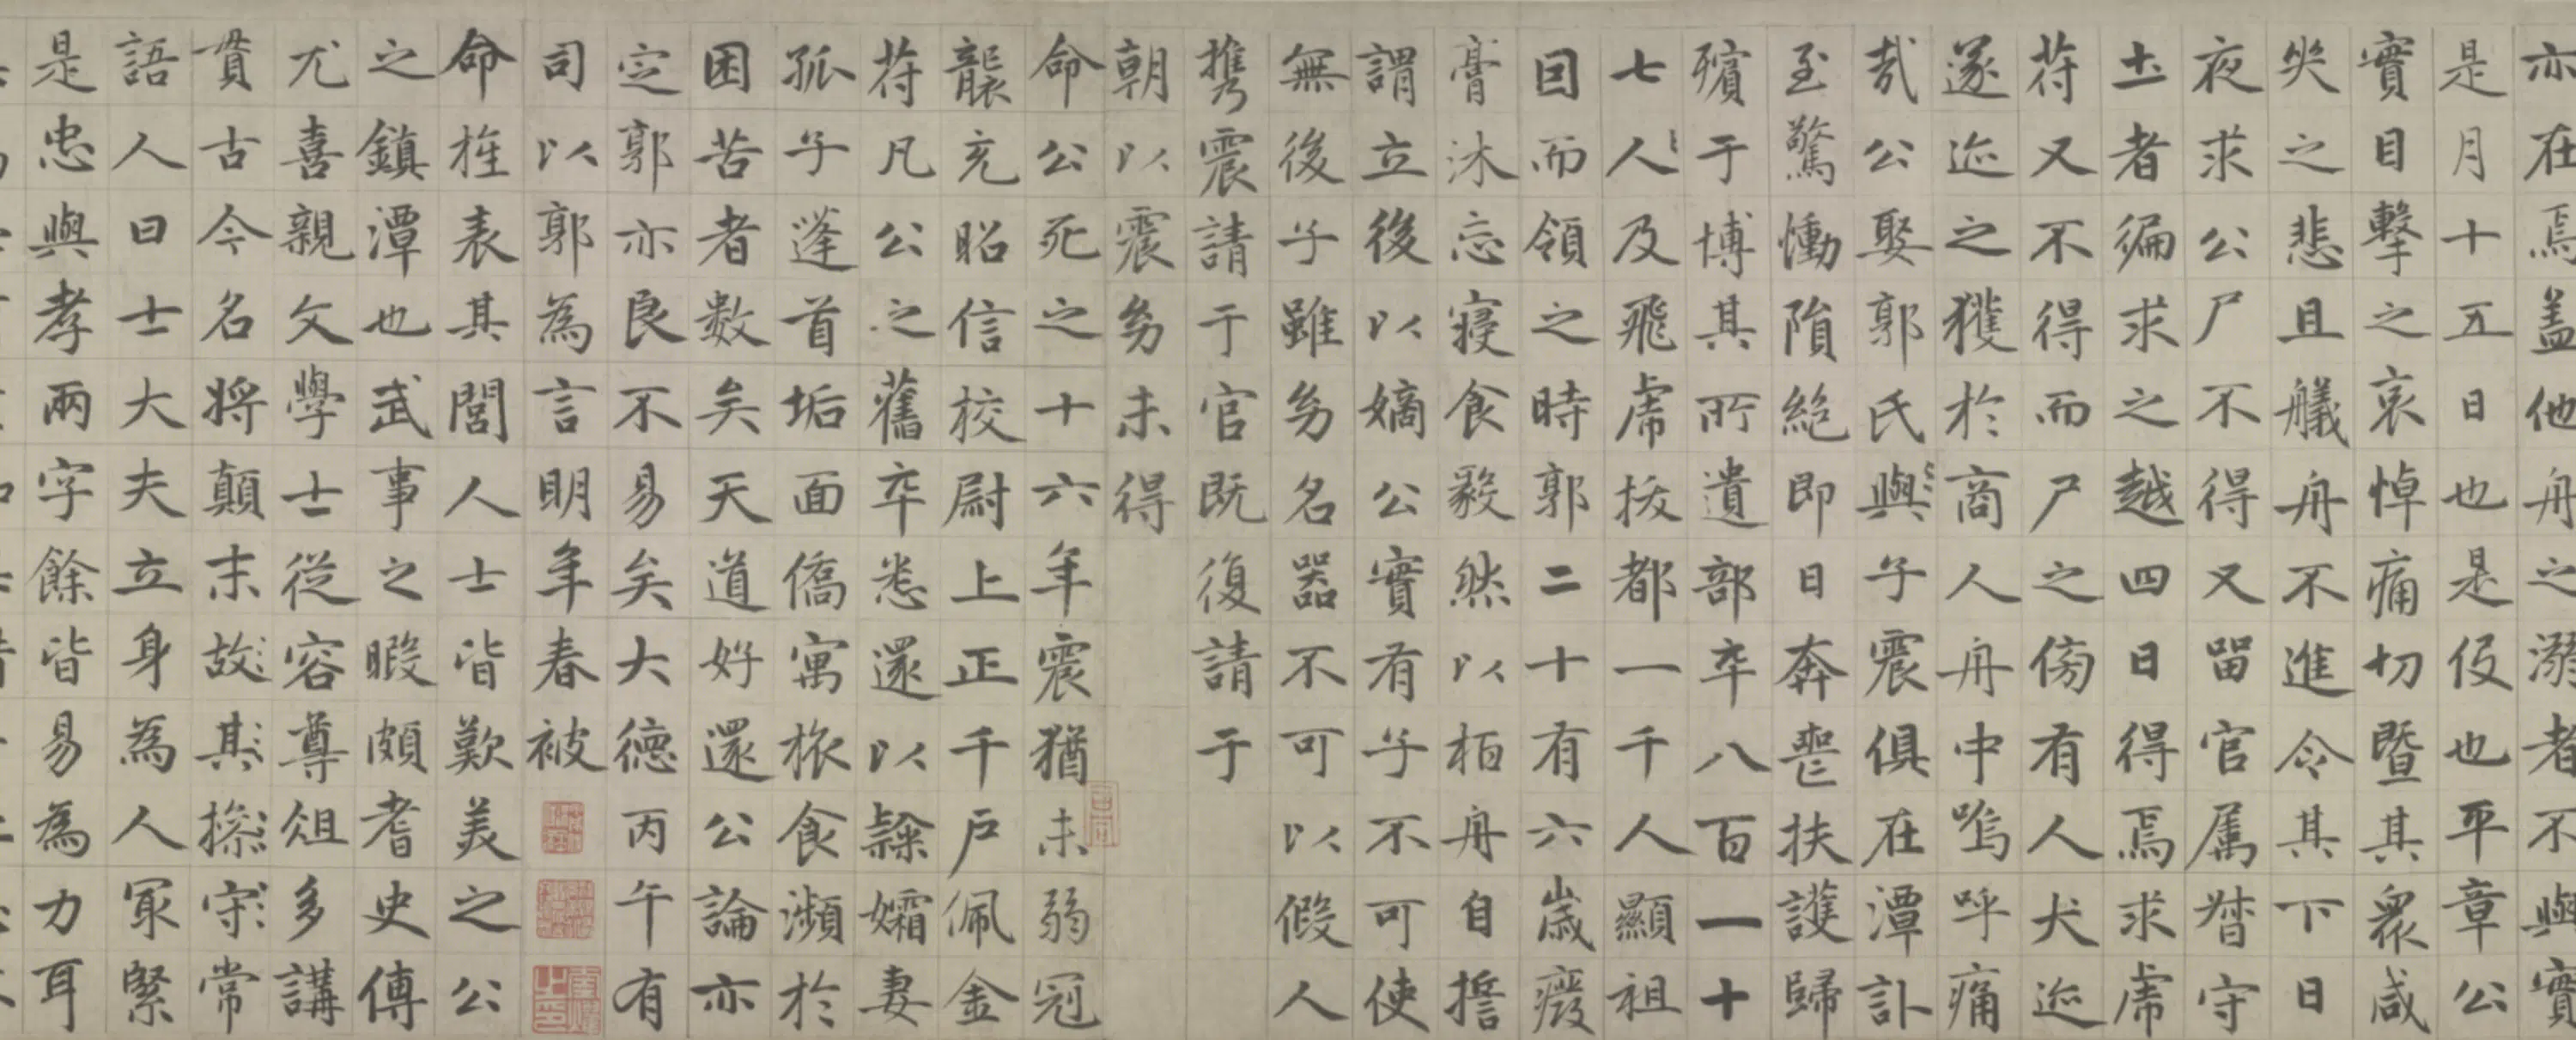 亦在焉盖他舟之溺者不與實
是月十五日也是役也平章公
實目擊之哀悼痛切暨其衆咸
失之悲且艤舟不進令其下日
夜求公尸不得又留官属督守
土者徧求之越四日得焉求虎
符又不得而尸之傍有人犬迹
遂迹之獲於商人舟中嗚呼痛
哉公娶郭氏與子震俱在潭訃
至驚慟隕絶即日奔喪扶護歸
殯于博其所遺部卒八百一十
七人及飛虎拔都一千人顯祖
囙而領之時郭二十有六歲癈
膏沐忘寝食毅然以栢舟自誓
謂立後以嫡公實有子不可使
無後子雖㓜名器不可以假人
携震請于官既復請于
朝以震㓜未得
命公死之十六年震猶未弱冠
襲充昭信校尉上正千戸佩金
符凡公之舊卒悉還以隸孀妻
孤子蓬首垢面僑寓旅食瀕於
困苦者数矣天道好還公論亦
定郭亦良不易矣大德丙午有
司以郭為言明年春被
命旌表其閭人士皆歎美之公
之鎮潭也武事之暇頗耆史傳
尤喜親文學士從容尊俎多講
貫古今名將顛末故其操守常
語人曰士大夫立身為人冣緊
是忠與孝兩字餘皆易為力耳